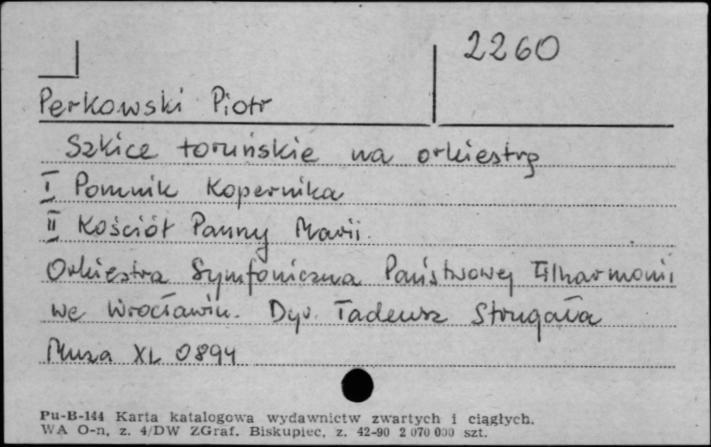 2260
Perkowski Piotr
Szkice toruńskie na orkiestrę
I Pomnik Kopernika
II Kościół Panny Marii.
Orkiestra Symfoniczna Państwowej Filharmonii
we Wrocławiu. Dyr. Tadeusz Strugała
Muza XL 0894
Pu-B-144 Karta katalogowa wydawnictw zwartych i ciągłych.
WA O-n, z. 4/DW ZGraf. Biskupiec, z. 42-90 2 070 000 szt.